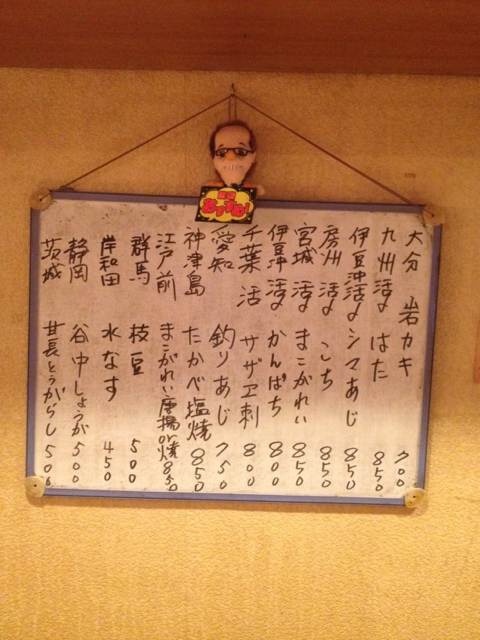 大分 岩カキ 700
九州 活〆 はた 850
伊豆沖活〆 シマあじ 850
房州 活〆 こち 850
宮城 活〆 まこがれい 850
伊豆沖 活〆 かんぱち 800
千葉 活 サザエ刺 800
愛知 釣りあじ 750
神津島 たかべ塩焼 850
江戸前 まこがれい唐揚or焼 850
群馬 枝豆 500
岸和田 水なす 450
静岡 谷中しょうが 500
茨城 甘長とうがらし 500